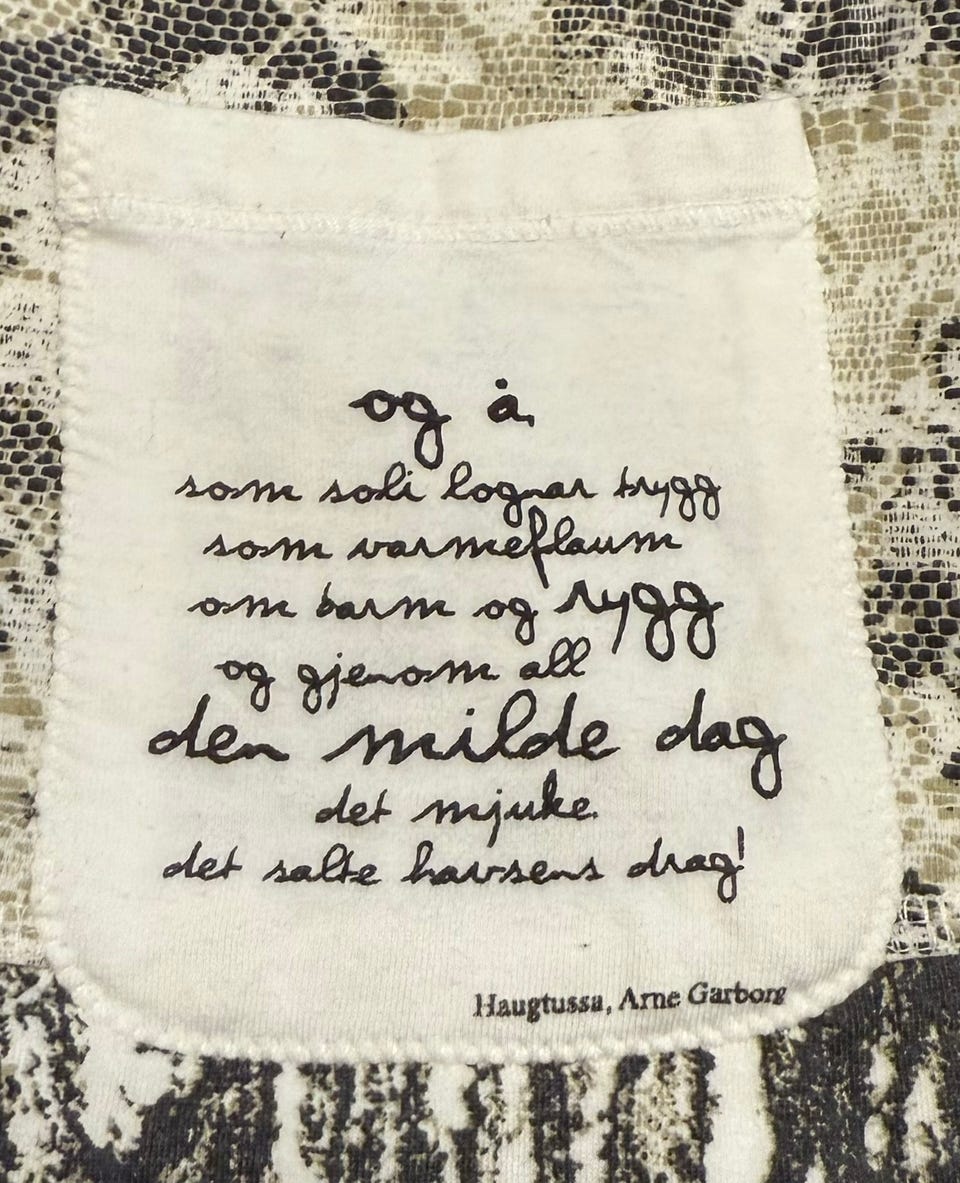 og å,
som soli lognar trygg
som varmeflaum
om barm og rygg
og gjenom all
den milde dag
det mjuke.
det salte havsens drag!
Haugtussa, Arne Garborg